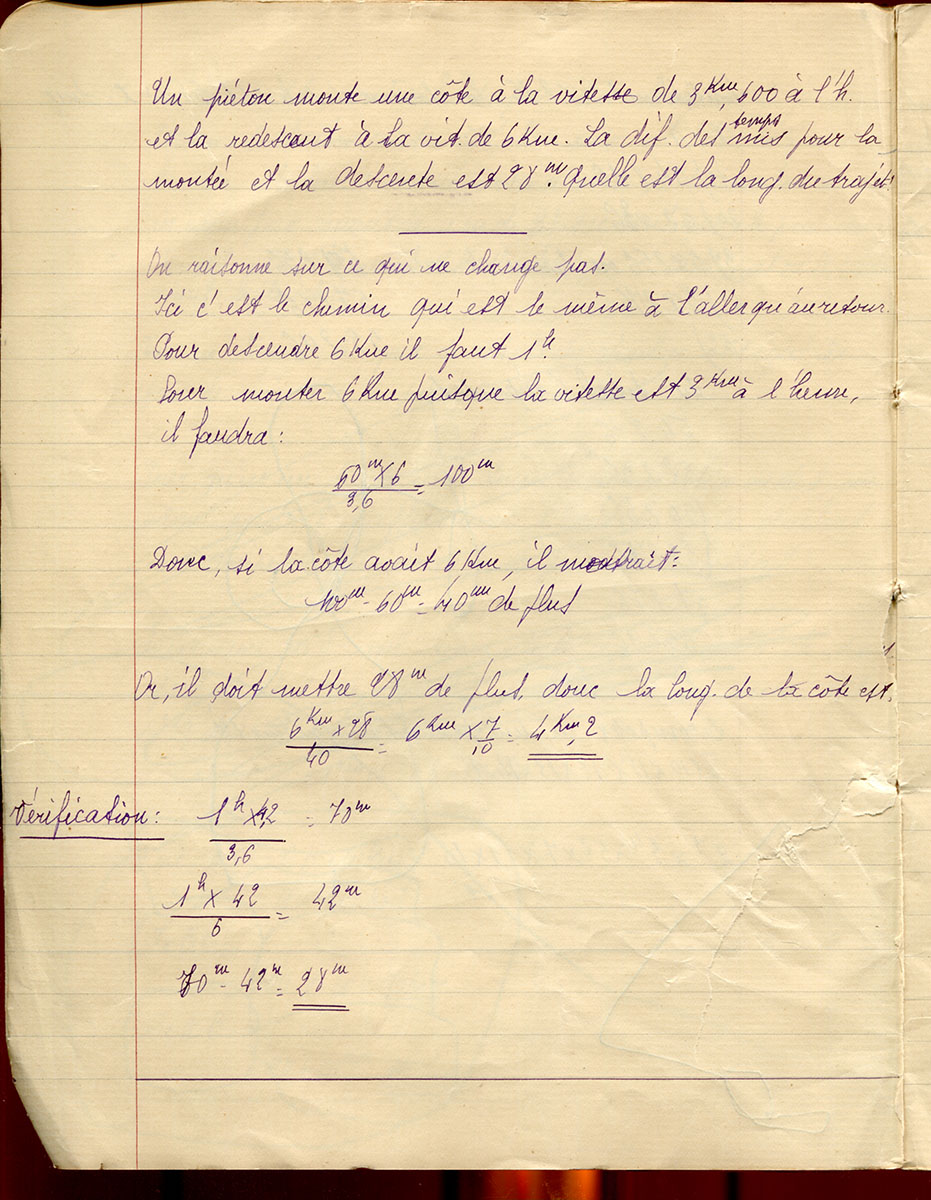 Un piéton monte une côte à la vitesse de 3Km,600 à l'h.
et la redescent à la vit. de 6Km. La dif. des temps mis pour la
montée et la descente est 28m. Quelle est la long. du trajet.
On raisonne sur ce qui ne change pas.
Ici c'est le chemin qui est le même à l'aller qu'au retour.
Pour descendre 6Km il faut 1h.
Pour monter 6Km puisque la vitesse est 3Km à l'heure,
il faudra :
60m×6 / 3,6 = 100m
Donc, si la côte avait 6Km, il mettrait :
100m - 60m = 40m de plus
Or, il doit mettre 28m de plus, donc la long. de la côte est.
6Km × 28 / 40 = 6Km × 7/10 = 4Km,2
Vérification : 1h × 4,2 / 3,6 = 70m
1h × 42 / 6 = 42m
70m - 42m = 28m